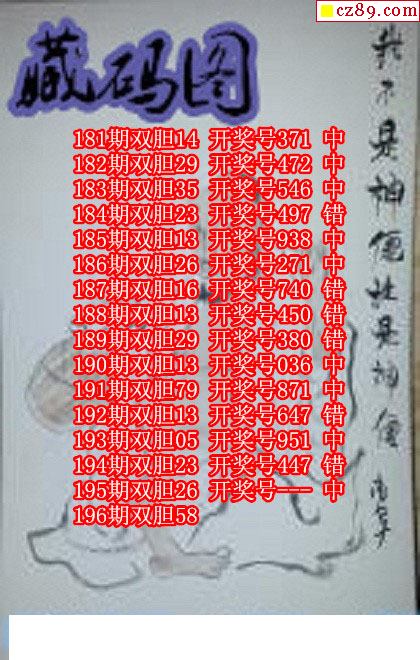 cz89.com
藏码图
181期双胆14 开奖号371 中
182期双胆29 开奖号472 中
183期双胆35 开奖号546 中
184期双胆23 开奖号497 错
185期双胆13 开奖号938 中
186期双胆26 开奖号271 中
187期双胆16 开奖号740 错
188期双胆13 开奖号450 错
189期双胆29 开奖号380 错
190期双胆13 开奖号036 中
191期双胆79 开奖号871 中
192期双胆13 开奖号647 错
193期双胆05 开奖号951 中
194期双胆23 开奖号447 错
195期双胆26 开奖号--- 中
196期双胆58
我不是神仙 是神仙